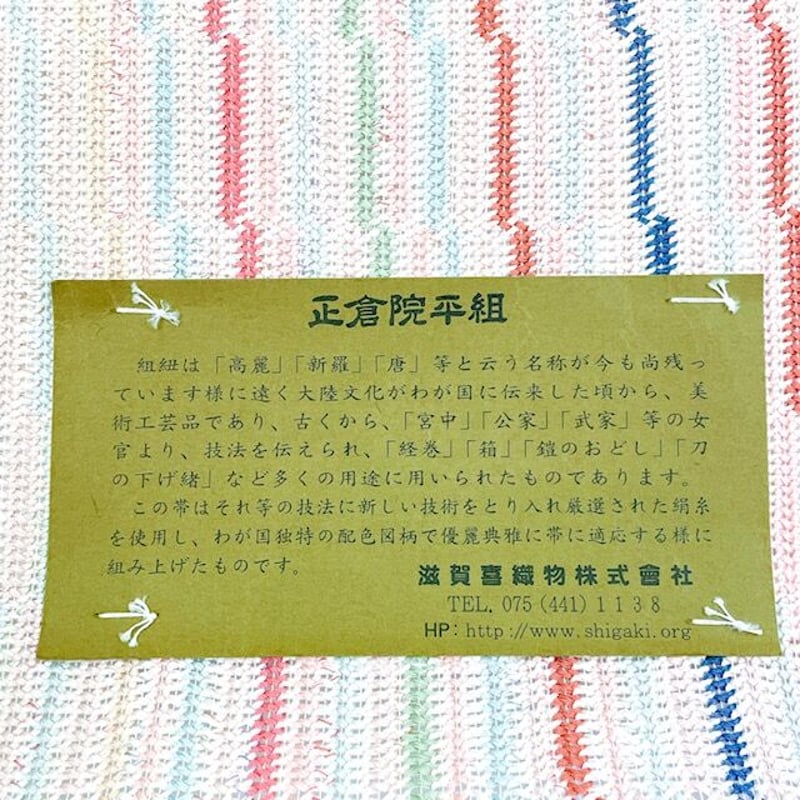 正倉院平組
組紐は「高麗」「新羅」「唐」等と云う名称が今も尚残っ
ています様に遠く大陸文化がわが国に伝来した頃から、美
術工芸品であり、古くから、「宮中」「公家」「武家」等の女
官より、技法を伝えられ、「経巻」「箱」「鎧のおどし」「刀
の下げ緒」など多くの用途に用いられたものであります。
この帯はそれ等の技法に新しい技術をとり入れ厳選された絹糸
を使用し、わが国独特の配色図柄で優麗典雅に帯に適応する様に
組み上げたものです。
滋賀喜織物株式會社
TEL. 075 (441) 1138
HP: http://www.shigaki.org